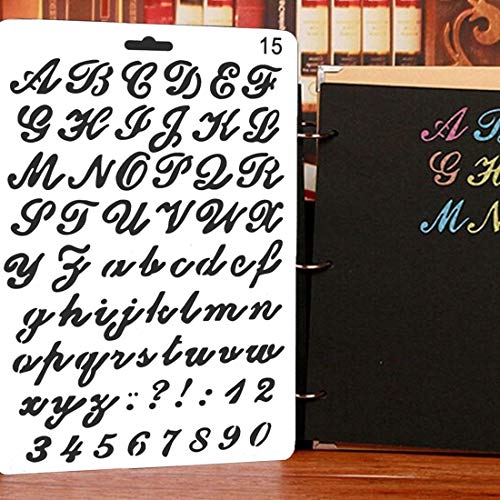 15
A B C D E F
G H I J K L
M N O P Q R
S T U V W X
Y Z a b c d e f
g h i j k l m n
o p q r s t u v w
x y z : ? ! : 1 2
3 4 5 6 7 8 9 0
A B
G H
M N